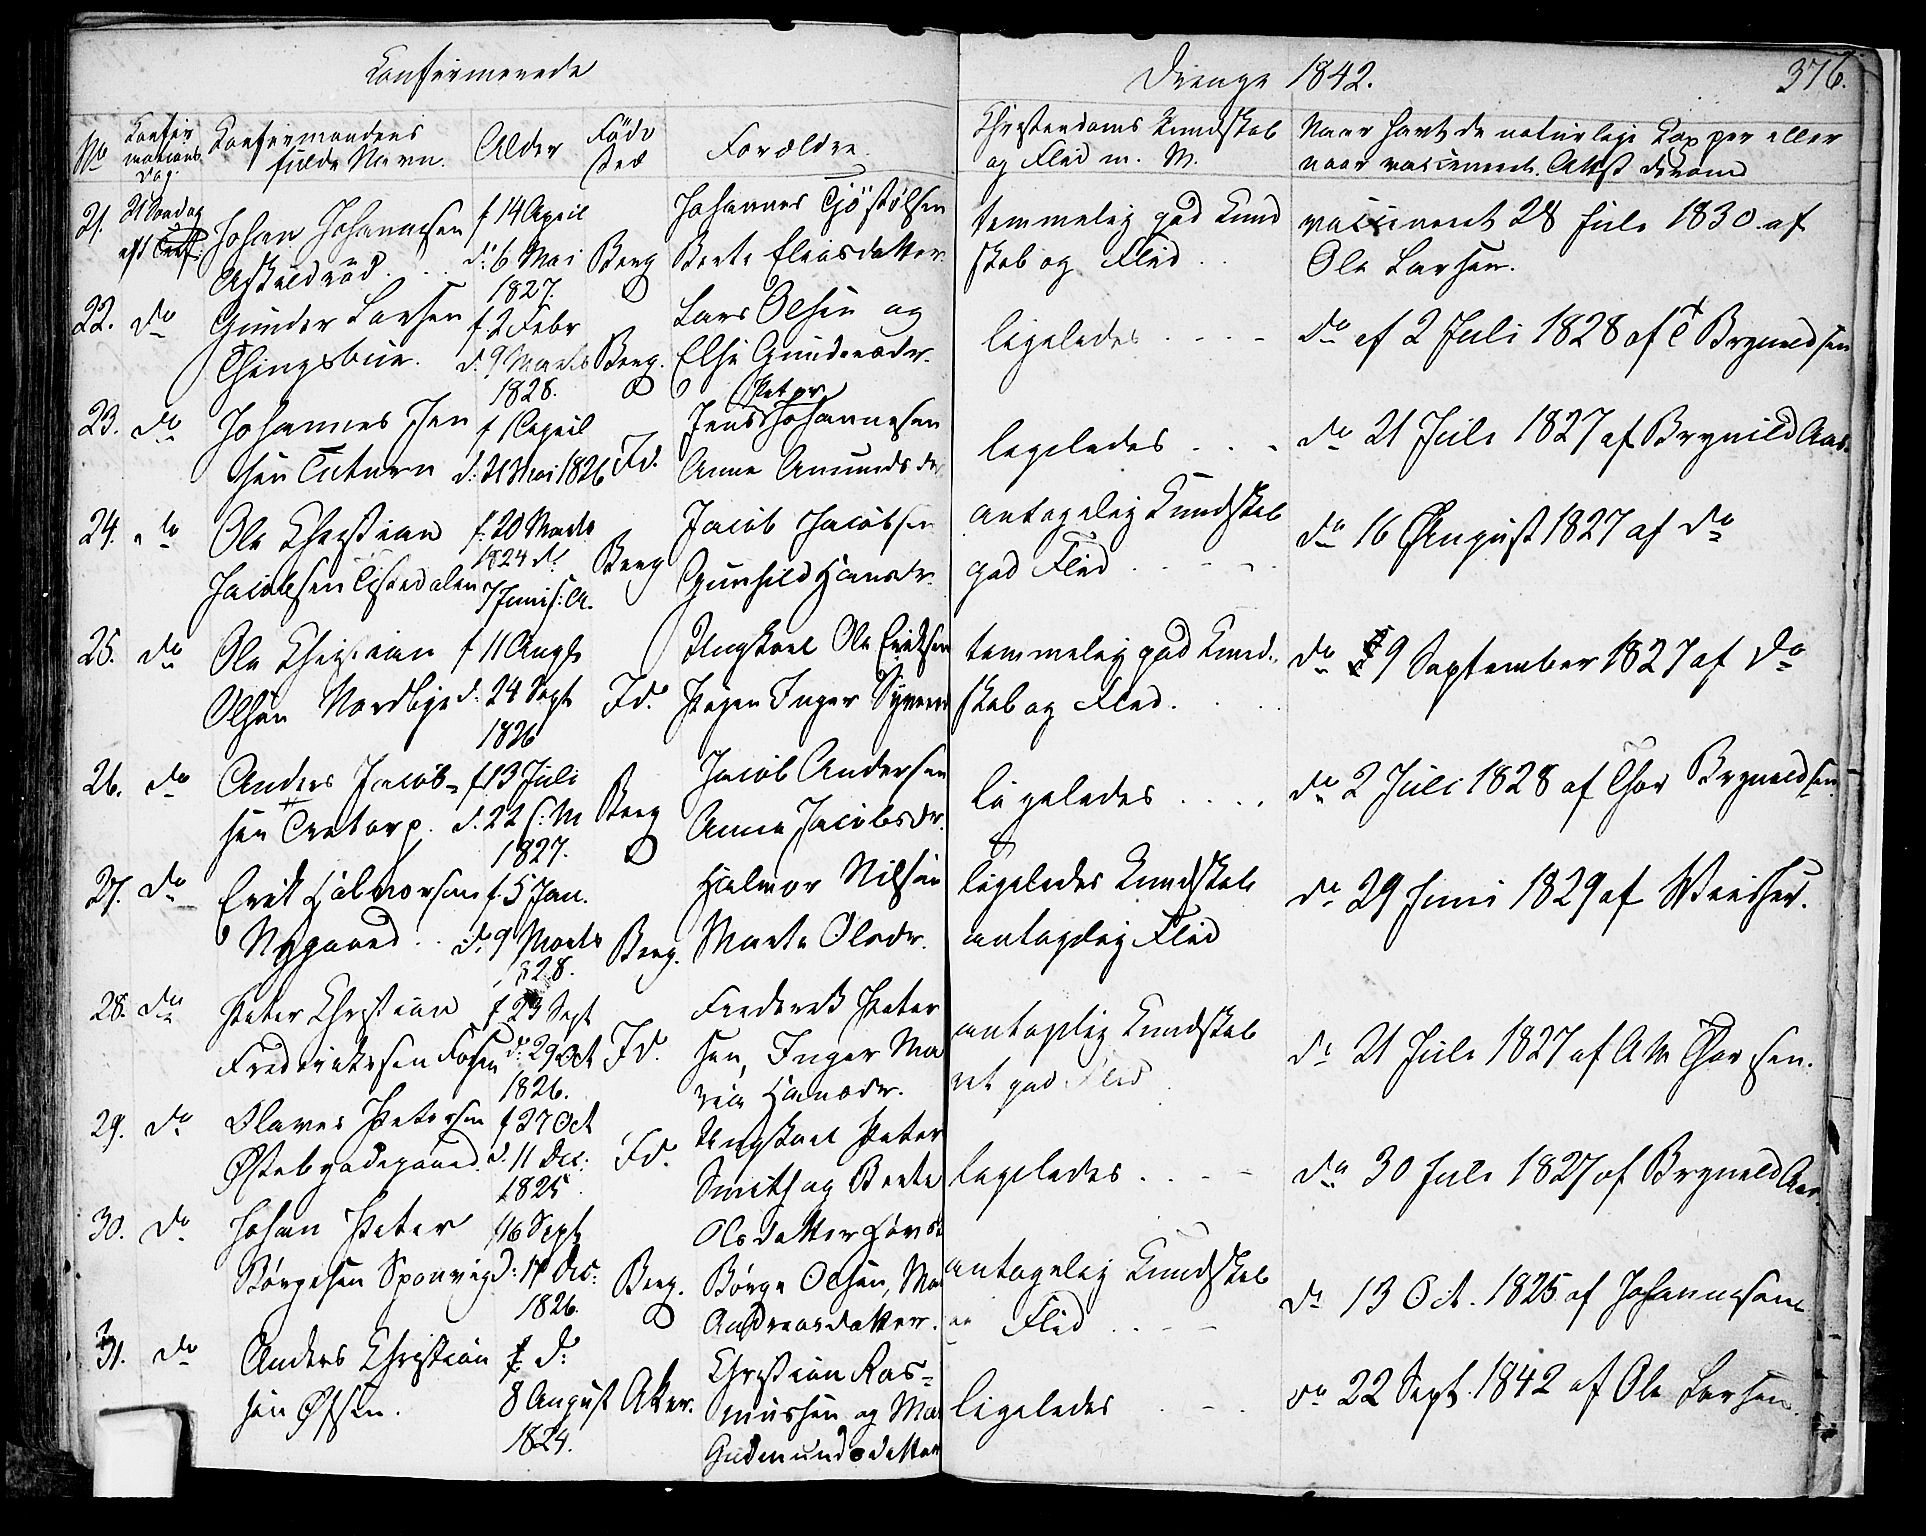 Confirmerede
Drenge 1842.
376.
No
Confirmations
Dag.
Confirmandens
fulde Navn.
Alder
Føde
sted
Forældre.
Christendoms Kundskab
og Flid m. M.
Naar havt de naturlige Kopper eller
naar vaccineret. Attest derom
21.
21 Søndag
eft Trif:
Johan Johannesen
Askildrød.
f 14 April
d: 6 Mai
1827.
Berg
Johannes Tjöstölsen
Berte Eliasdatter
temmelig god Kund
skab og Flid
vaccineret 28 Juli 1830 af
Ole Larsen.
22.
do
Gunder Larsen
Thingsbue.
f. 2 Febr
d. 9 Marts
1828.
Berg.
Lars Olsen og
Else Gundersdr.
ligeledes
do af 2 Juli 1828 af T Brynildsen
23.
do
Johannes Jen
sen
f 1 April
d: 21 Mai 1826
Id.
Peter
Jens Johannesen
Anne Amundsdr
ligeledes
do 21 Juli 1827 af Brynild Aas.
24.
do
Ole Christian
Jacobsen Tistedalen
f: 20 Marts
1824 d:
7 Juni s: A.
Berg
Jacob Jacobsen
Gunhild Hansdr.
antagelig Kundskab
god Flid
do 16 August 1827 af do
25.
do
Ole Christian
Olsen Nordbye
f 11 Augs
d: 24 Sept
1826
Id.
Ungkarl Ole Eriksen
Pigen Inger
temmelig god Kund
skab og Flid.
do 9 September 1827 af do
26.
do
Anders Jacob-
sen Tretorp.
f 13 Juli
d. 22 s: M
1827.
Berg
Jacob Andersen
Anne Jacobsdr.
ligeledes
do 2 Juli 1828 af Thor Brynildsen
27.
do
Erik Halmorsen
Nygaard
f. 5 Jan.
d. 9 Marts
1828.
Berg.
Halmor Nilsen
Marte Olsdr.
ligeledes Kundskab
antagelig Flid
do 29 Juni 1829 af
28.
do
Peter Christian
Frederiksen Fosen
f 23 Sept
d: 29 Oct
1826.
Id.
Frederik Peter
sen, Inger Ma
ria Hansdr.
antagelig Kundskab
ret god Flid
do 21 Juli 1827 af A M Thorsen.
29.
do
Olaves Petersen
f 27 Oct
d. 11 Dec:
1825
Id.
Ungkarl Peter
Smith og Berte
Olsdatter
ligeledes
do 30 Juli 1827 af Brynild Aas
30.
do
Johan Peter
Börgesen Sponvig
f 16 Sept
d: 17 Dec:
1826.
Berg.
Börge Olsen, Mar
Andreasdatter.
antagelig Kundskab
Flid
do 13 Oct. 1825 af Johannesen
31.
do
Anders Christian
sen
f. d:
8 August
1824.
Aker.
Christian Ras-
mussen og Mar
Gudmundsdatter
ligeledes
do 22 Sept. 1842 af Ole Larsen.